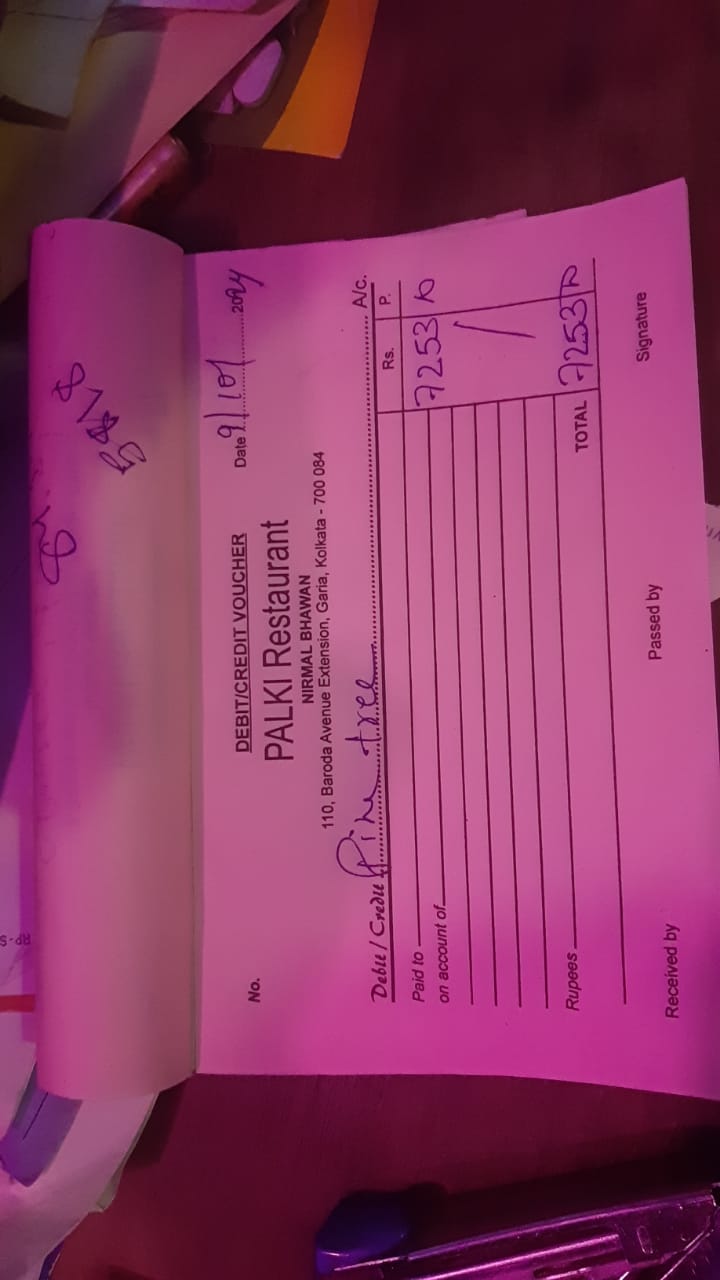 No.
DEBIT/CREDIT VOUCHER
Date 9/10/ 2024
PALKI Restaurant
NIRMAL BHAWAN
110, Baroda Avenue Extension, Garia, Kolkata - 700 084
Debit / Credit Pine tree A/c.
Rs. P.
Paid to 7253
on account of
Rupees TOTAL 7253
Received by Passed by Signature